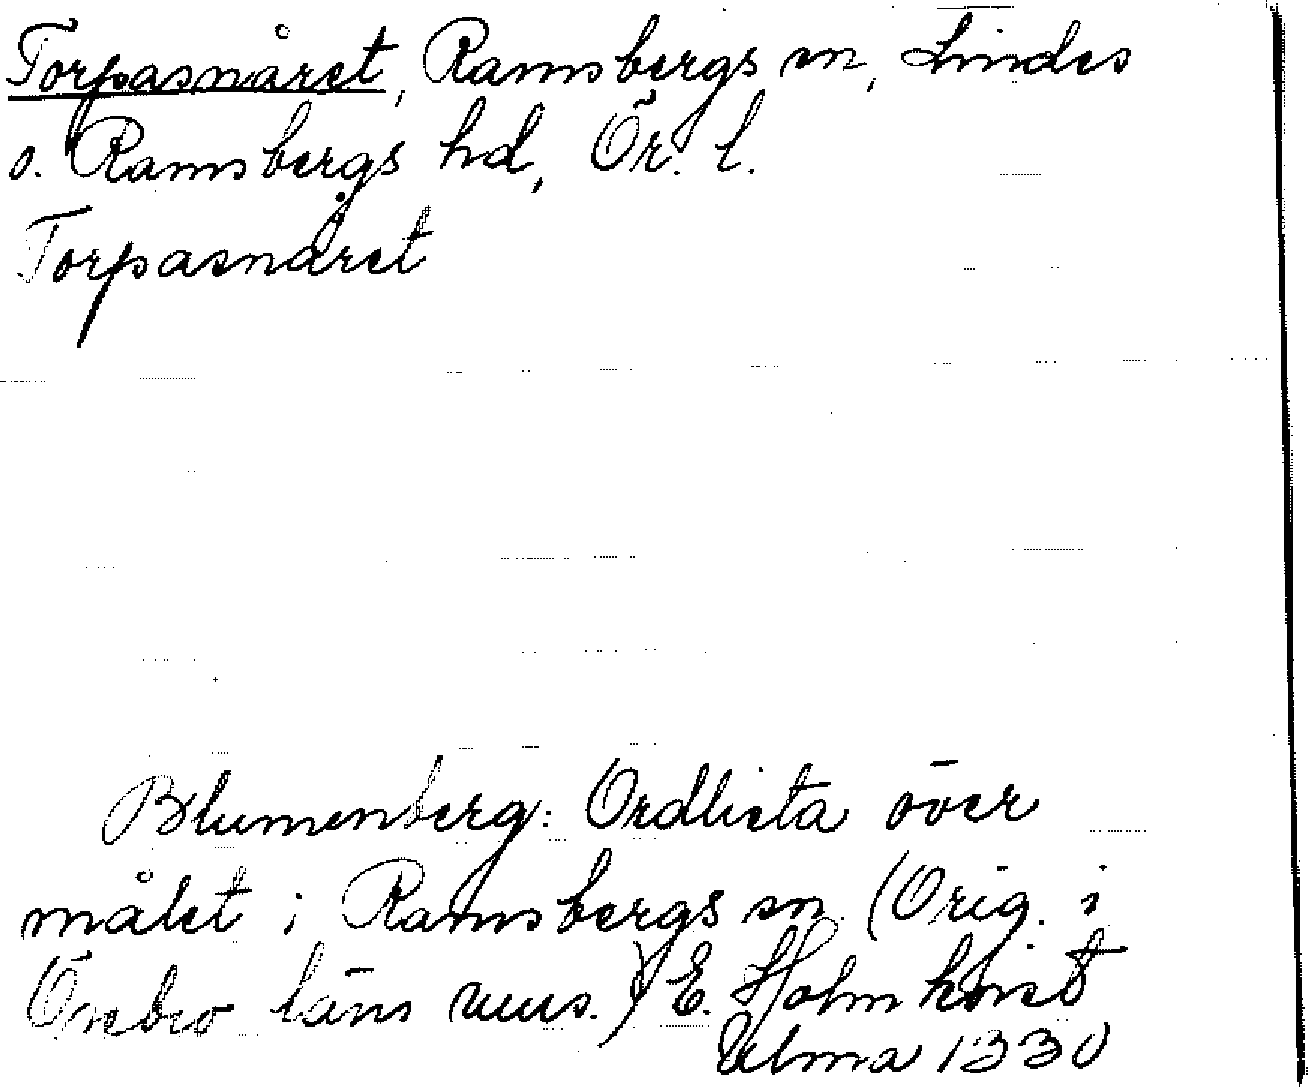 Torpasnåret, Ramsbergs sn, Lindes
o. Ramsbergs hd, Ör. l.
Torpasnåret
Blumenberg: Ordlista över
målet i Ramsbergs sn. (Orig. i
Örebro läns mus.) E. Holmkvist
Ulma 1330